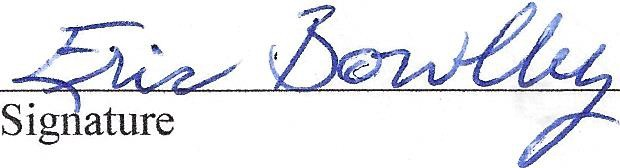 Eric Bowlby
Signature